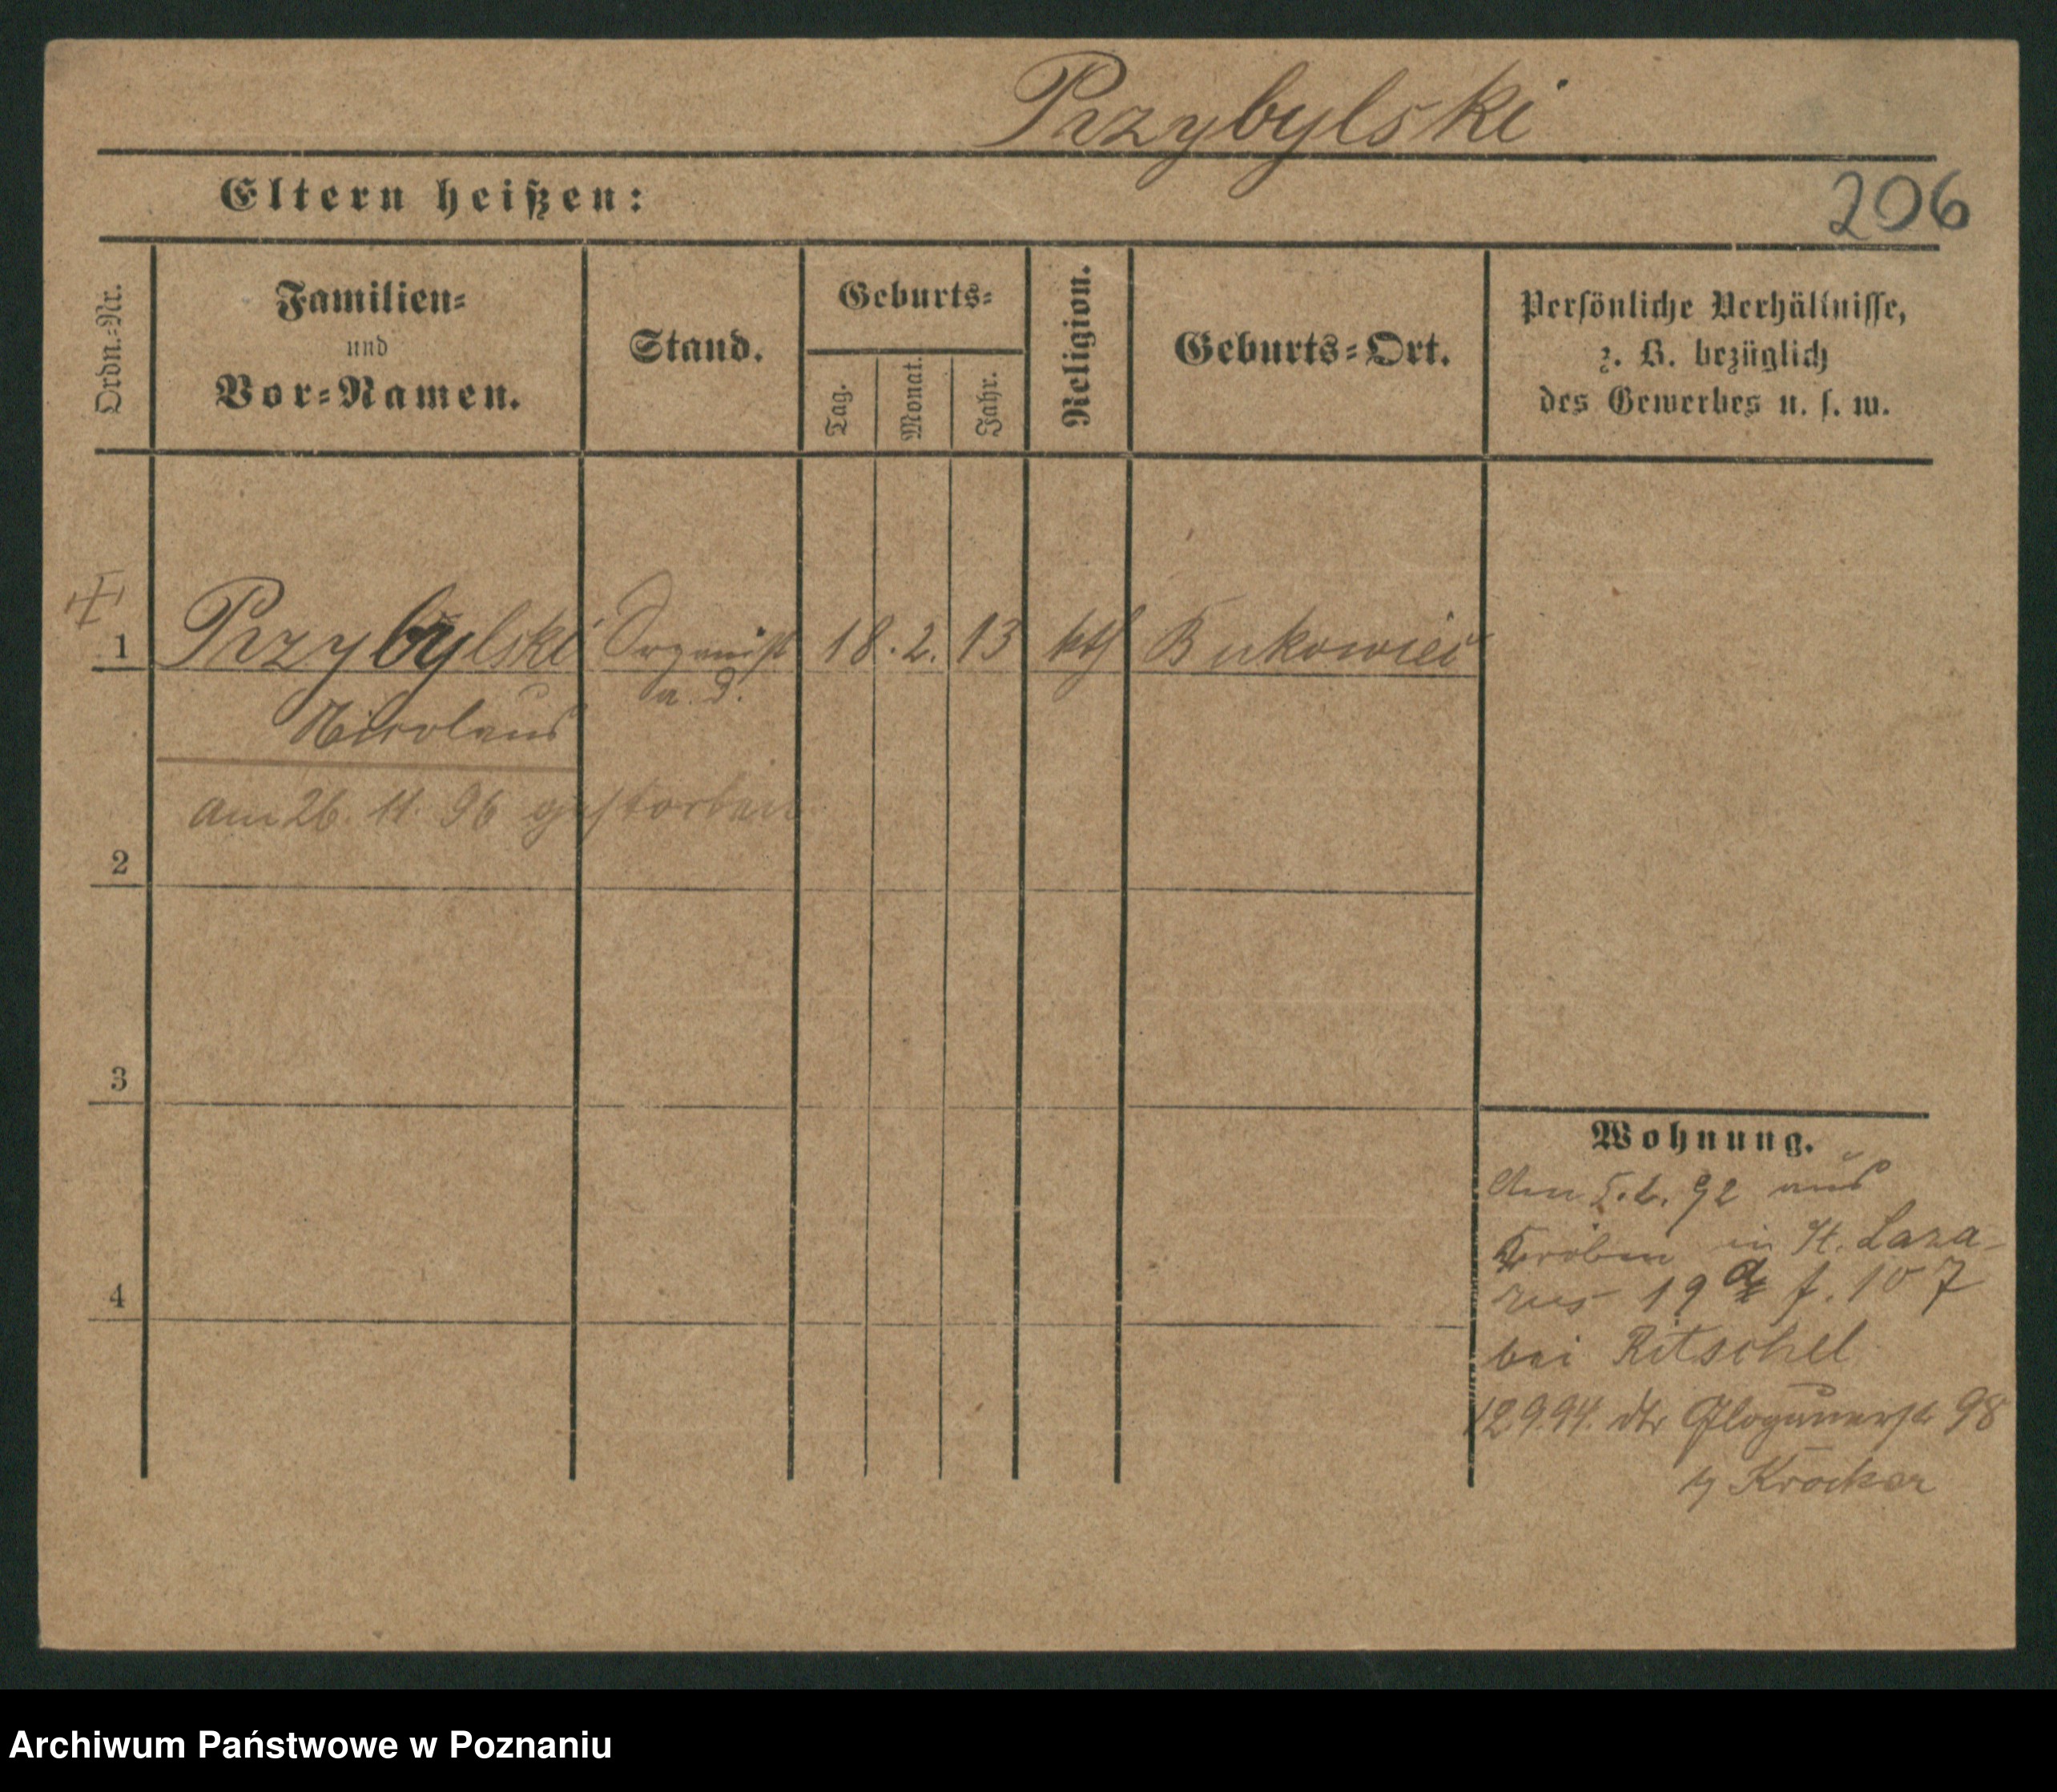 Przybylski
Eltern heißen:
206
Ordn.-Nr.
Familien-
und
Vor-Namen.
Stand.
Geburts-
Tag.
Monat.
Jahr.
Religion.
Geburts-Ort.
Persönliche Verhältnisse,
z. B. bezüglich
des Gewerbes u. s. w.
1 Przybylski Organist 18. 2. 13 kth Bukowiec
a. D.
Nicolaus
am 26. 11. 96 gestorben
2
3
4
Wohnung.
Am 92 aus
Kröben in St. Laza-
rus 19 f. 107
bei Ritschel
12.9.94. Glogauerstr 98
Krocker
Archiwum Państwowe w Poznaniu